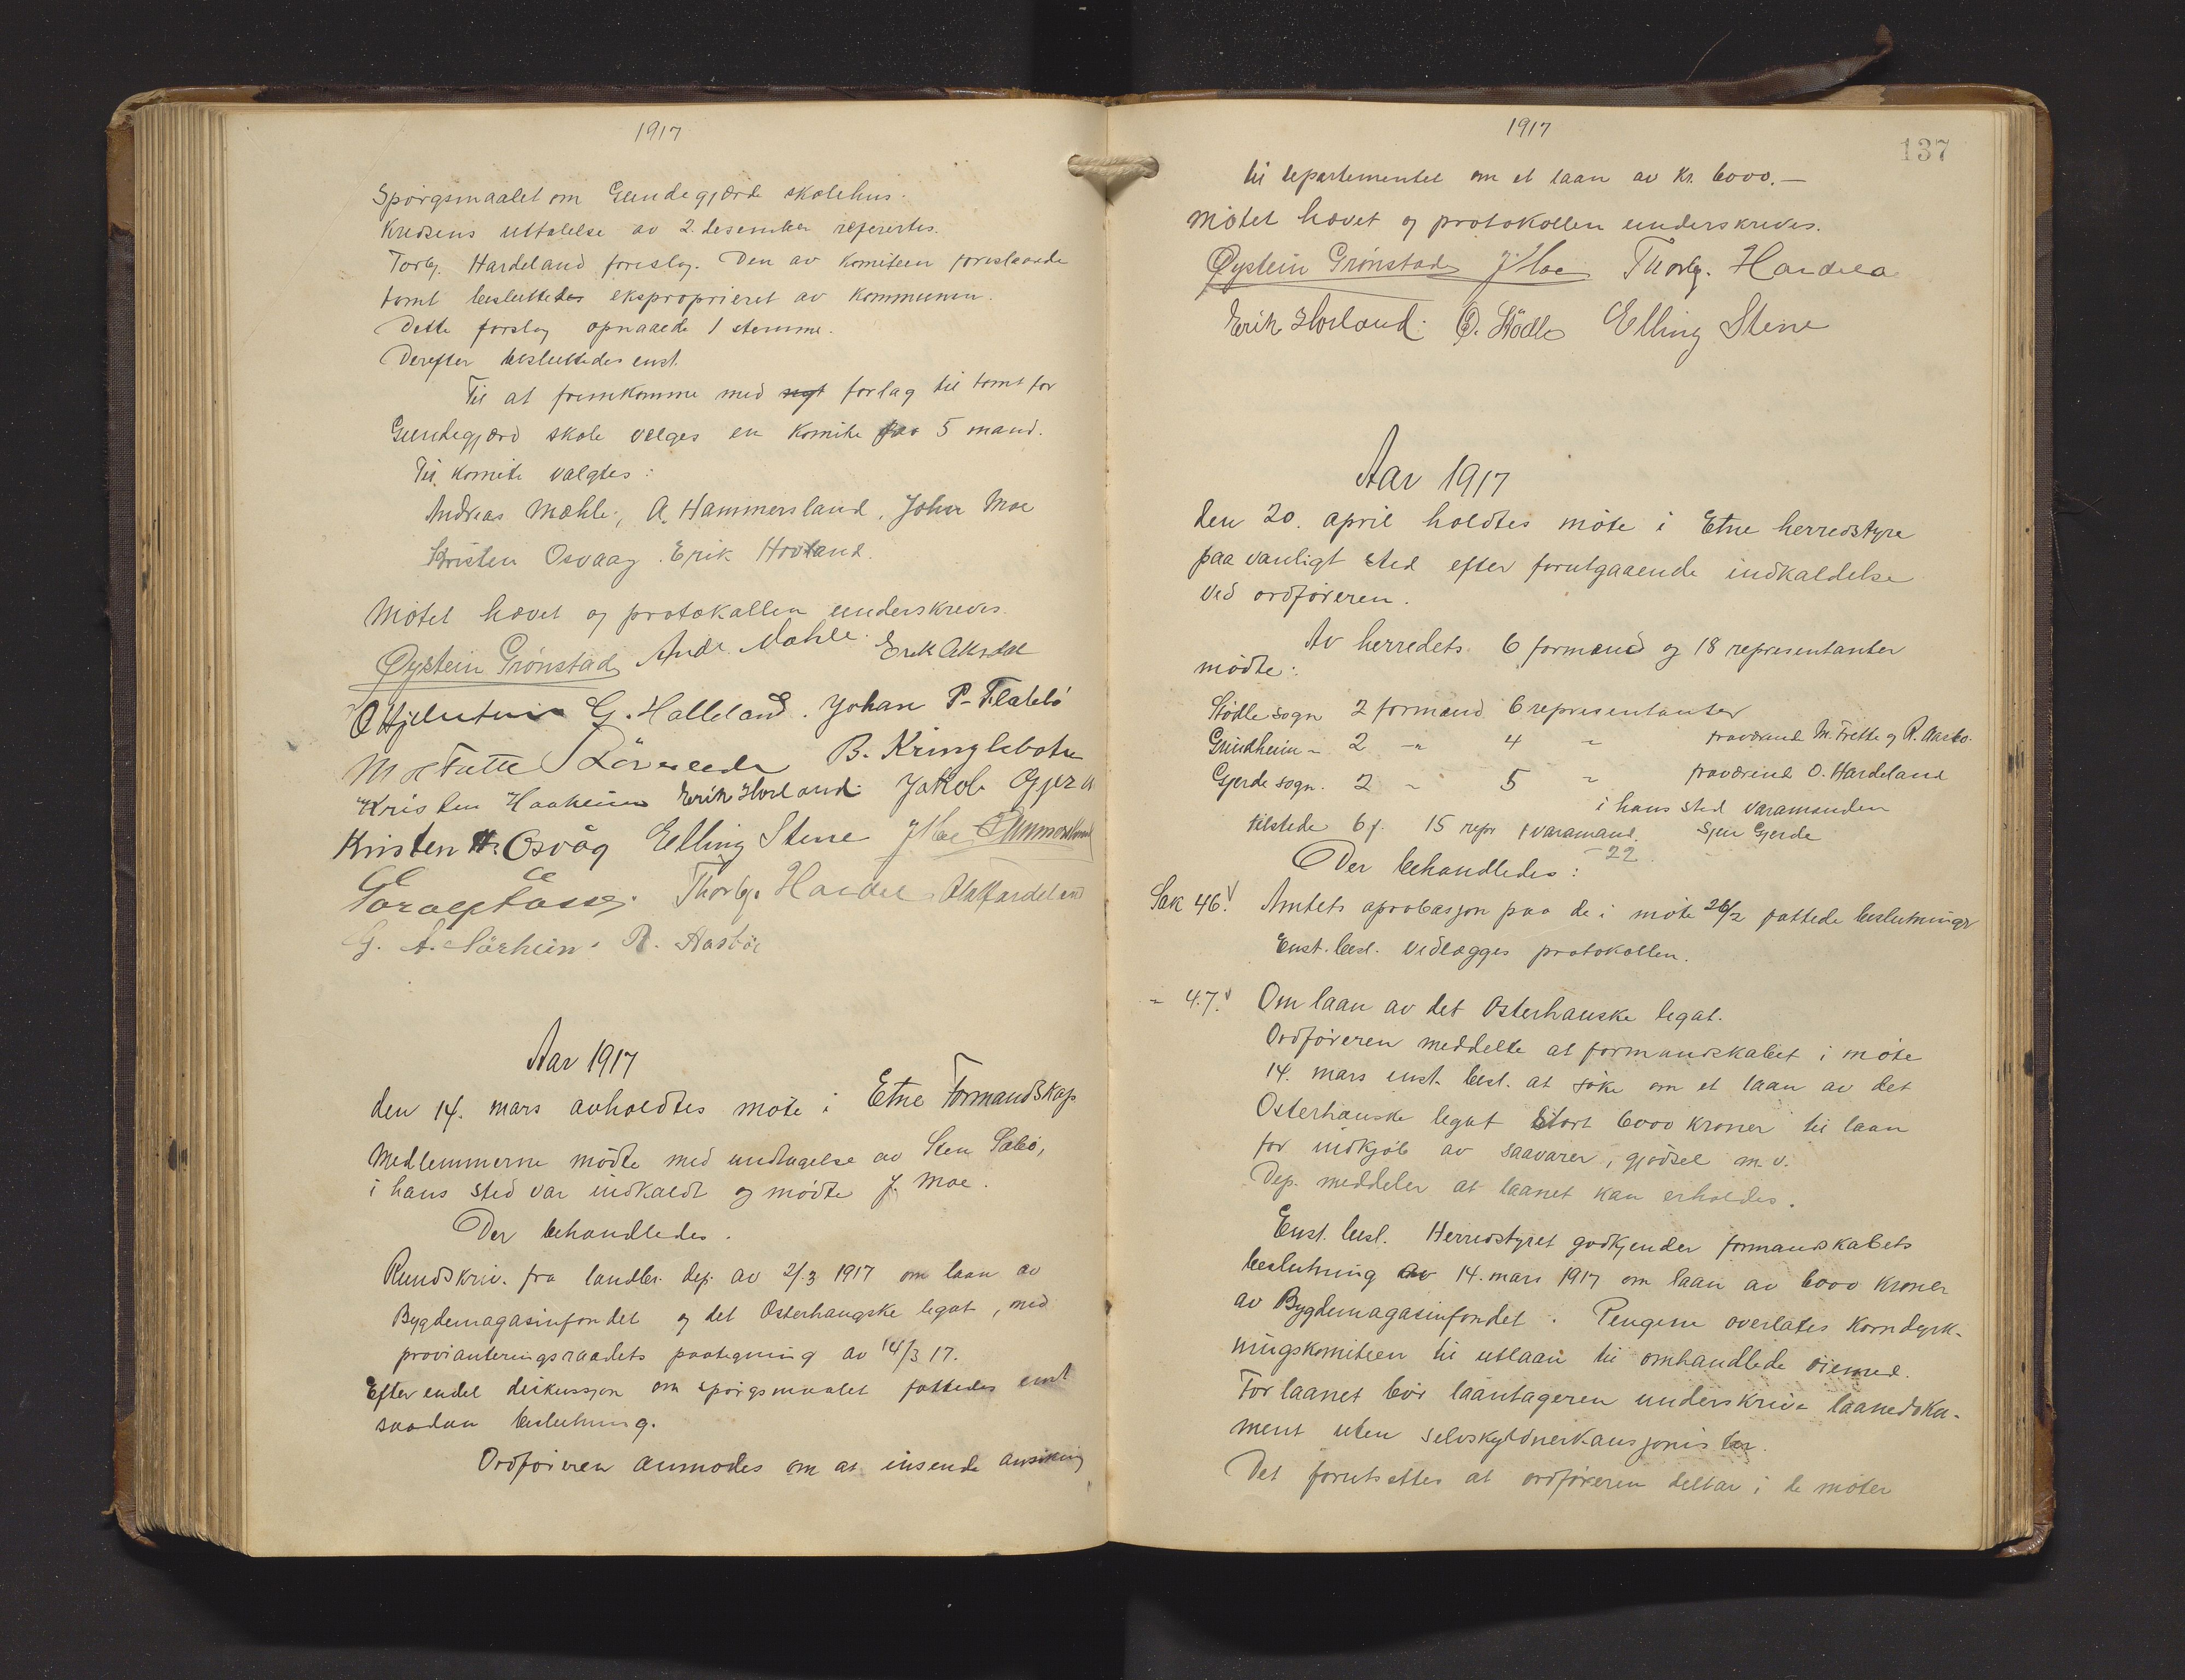 1917
Spörgsmaalet om Gundegjærde skolehus.
Kredsens uttalelse av 2. desember refertes.
Torbj. Hardeland foreslog. Den av komiteen foreslaaede
tomt besluttedes eksproprieret av kommunen.
Dette forslag opnaaede 1 stemme.
Derefter besluttedes enst.
Til at fremkomme med nyt forlag til tomt for
Gundegjærd skole vælges en komite paa 5 mand.
Til komite valgtes:
Andreas Mæhle, A. Hammersland, John Moe
Kristen Osvaag. Erik Hovland.
Mötet hævet og protokollen underskreves.
Øystein Grönstad Andr. Mæhle. Erik Aksdal
G. Halleland. Johan P. Flatebö
B. Kringlebotn
Kristen Haaheim Erik Hovland. Jakob Gjera
Kristen H. Osvåg Elling Stene J Moe
Thorbj. Hardel
G. A. Sörheim. R. Aasbö
Aar 1917
den 14. mars avholdtes möte i Etne Formandskap
Medlemmerne mödte med undtagelse av Sten Sæbö,
i hans sted var indkaldt og mödte J. Moe.
Der behandledes.
Rundskriv. fra landbr. dep. av 2/3 1917 om laan av
Bygdemagasinfondet og det Osterhaugske legat, med
provianteringsraadets paategning av 14/3 17.
Efter endel diskussjon om spörgsmaalet fattedes enst
saadan beslutning.
Ordföreren anmodes om at insende ansökning
1917
137
til departementet om et laan av Kr. 6000.—
Mötet hævet og protokollen underskreves.
Øystein Grönstad J Moe Thorbj. Hardela
Erik Hovland. Ö. Stödle Elling Stene
Aar 1917
den 20. april holdtes möte i Etne herredstyre
paa vanligt sted efter forutgaaende indkaldelse
ved ordföreren.
Av herredets 6 formænd og 18 representanter
mödte:
Stödle sogn 2 formænd 6 representanter
Grindheim " 2 " 4 " fraværend M. Frette og R. Aasbö.
Gjerde sogn. 2 " 5 " fraværend O. Hardeland
i hans sted varamanden
tilstede 6 f. 15 repr 1 varamand. Sjur Gjerde
- 22.
Der behandledes:
Sak 46. Amtets aprobasjon paa de i möte 26/2 fattede beslutninger
Enst. besl. vedlægges protokollen.
" 47. Om laan av det Osterhauske legat.
Ordföreren meddelte at formandskabet i möte
14. mars enst. besl. at söke om et laan av det
Osterhauske legat stort 6000 kroner til laan
for indkjöb av saavarer, gjödsel m. v.
Dep. meddeler at laanet kan erholdes.
Enst. besl. Herredstyret godkjender formandskabets
beslutning av 14. mars 1917 om laan av 6000 kroner
av Bygdemagasinfondet. Pengene overlates korndyrk-
ningskomiteen til utlaan til omhandlede öiemed.
For laanet bör laantageren underskrive laanedoku-
ment uten selvskyldnerkausjonister.
Det forutsættes at ordföreren deltar i de möter